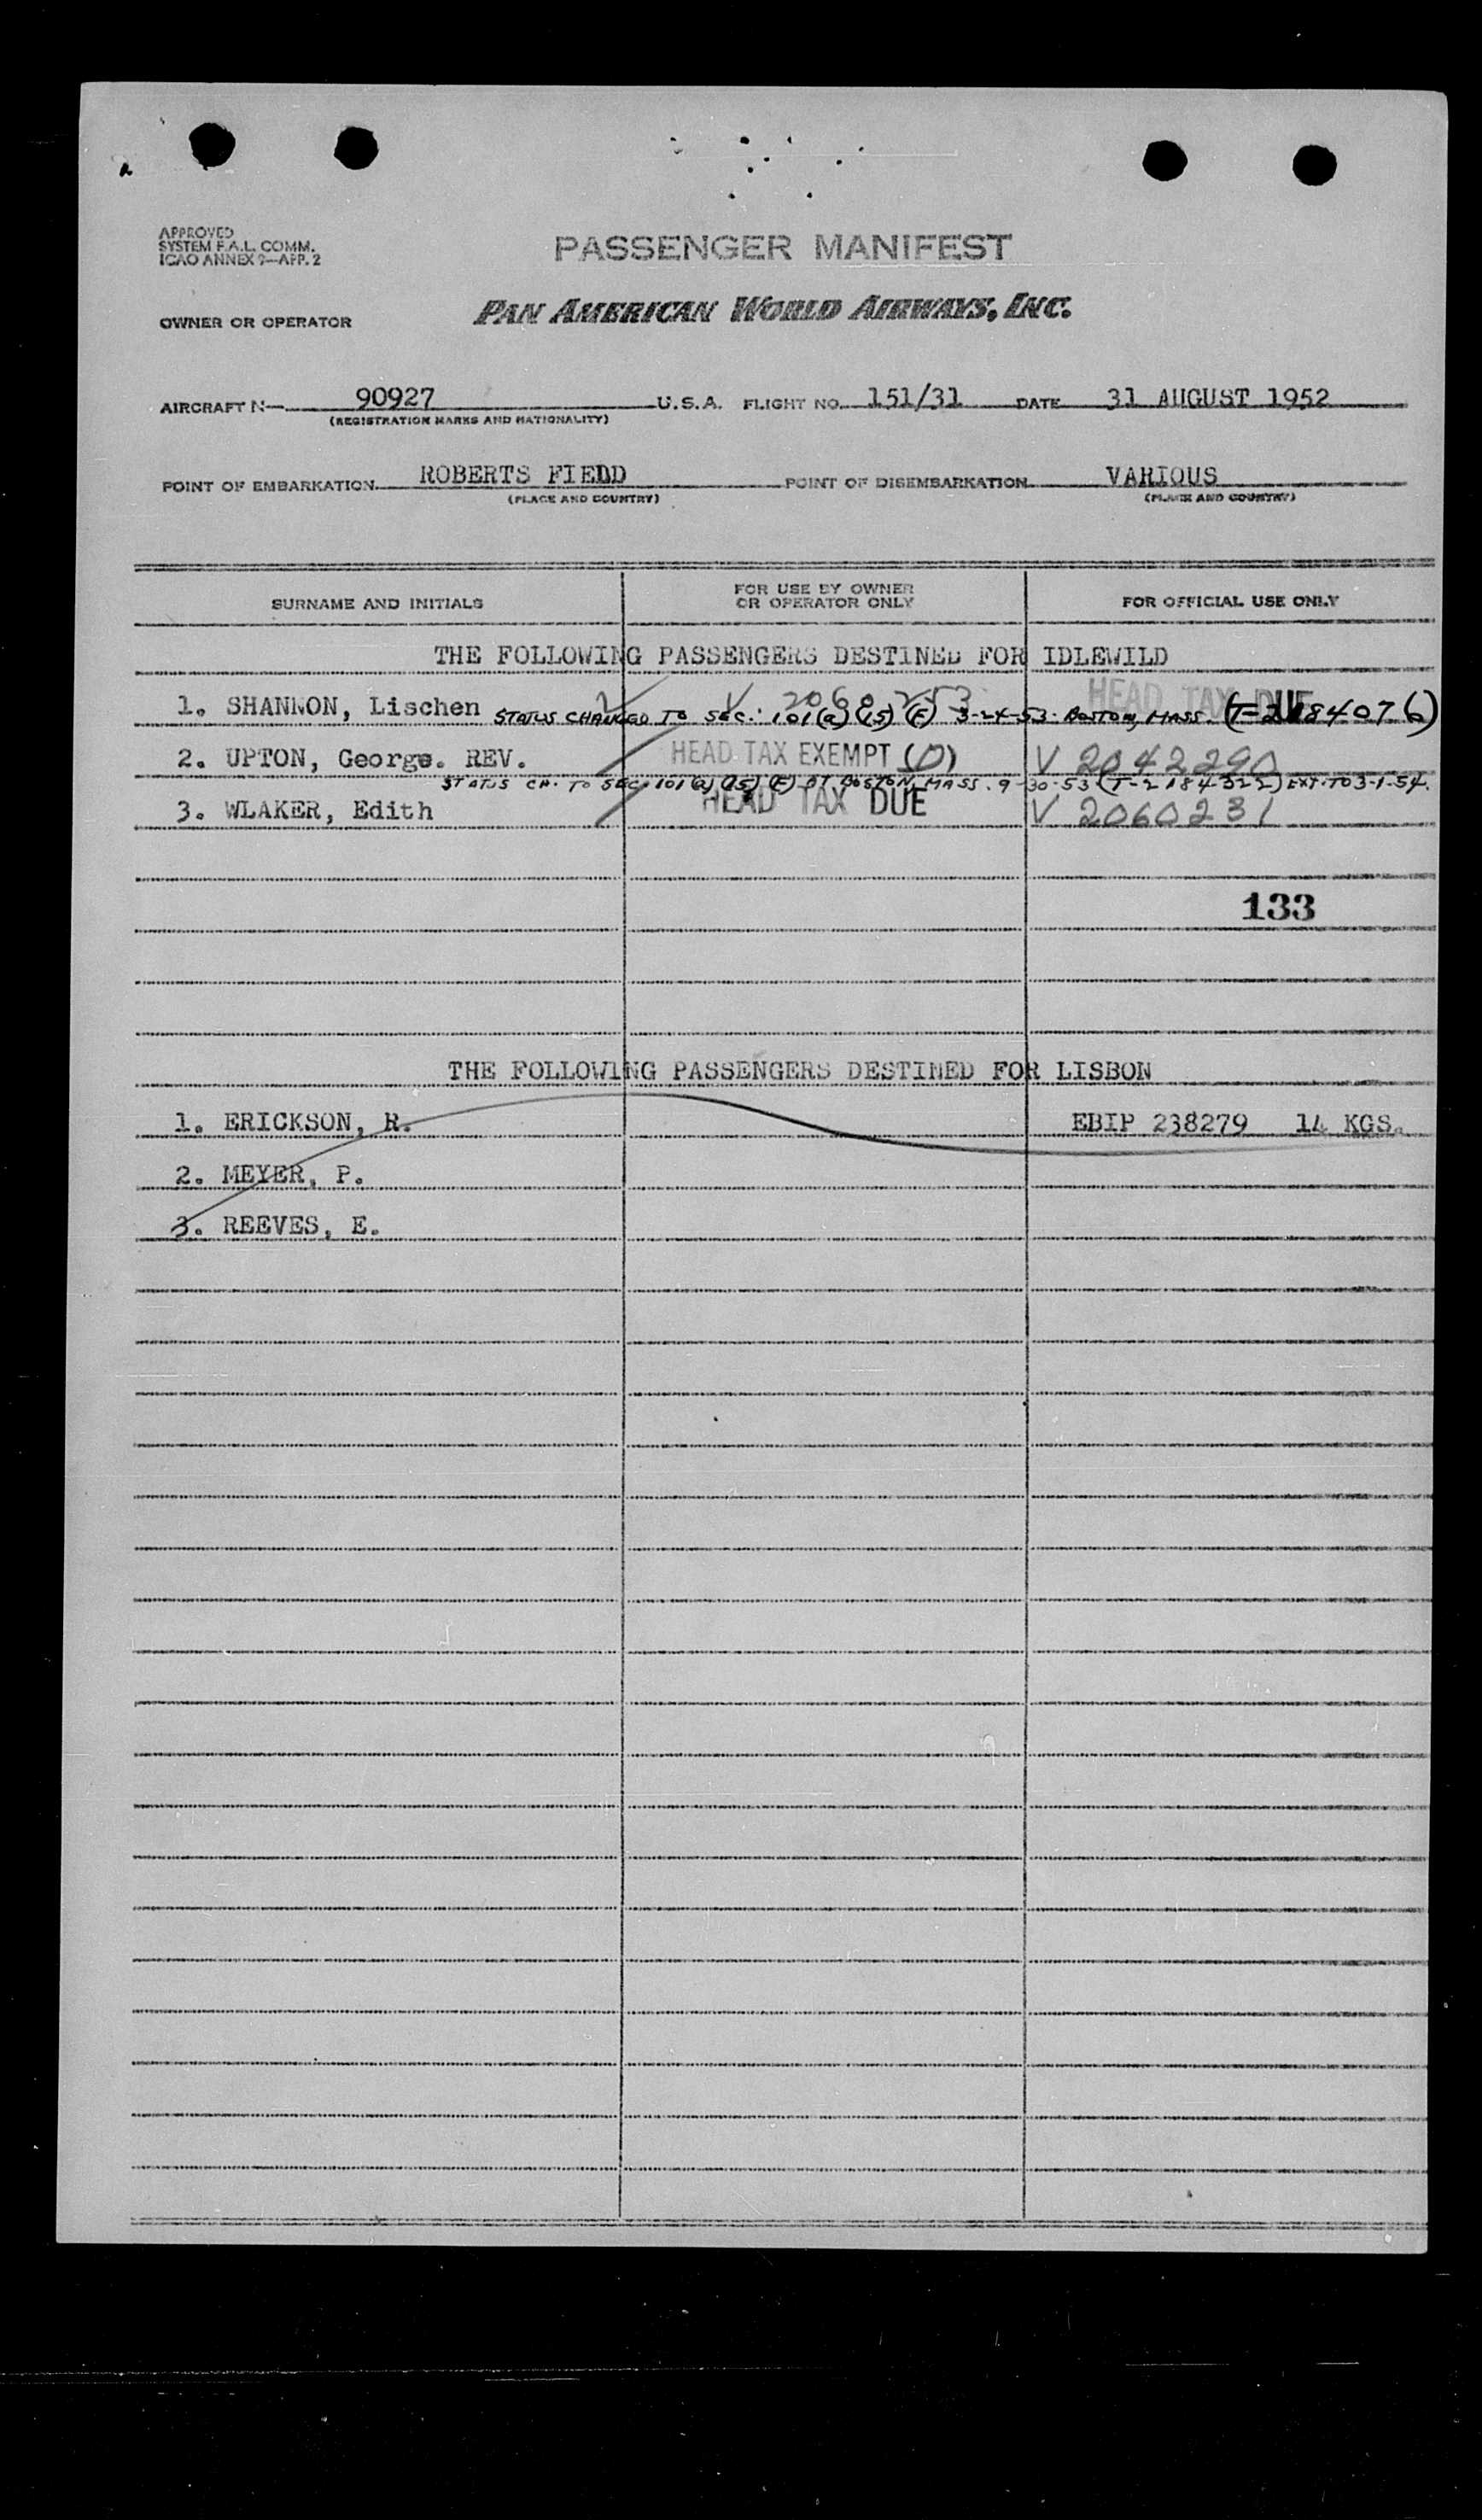 APPROVED
SYSTEM F.A.L. COMM.
ICAO ANNEX 9—APP. 2
PASSENGER MANIFEST
OWNER OR OPERATOR PAN AMERICAN WORLD AIRWAYS, INC.
AIRCRAFT N— 90927 U.S.A. FLIGHT NO. 151/31 DATE 31 AUGUST 1952
(REGISTRATION MARKS AND NATIONALITY)
POINT OF EMBARKATION ROBERTS FIEDD POINT OF DISEMBARKATION VARIOUS
(PLACE AND COUNTRY) (PLACE AND COUNTRY)
SURNAME AND INITIALS FOR USE BY OWNER OR OPERATOR ONLY FOR OFFICIAL USE ONLY
THE FOLLOWING PASSENGERS DESTINED FOR IDLEWILD
1. SHANNON, Lischen V 2060253 HEAD TAX DUE
STATUS CHANGED TO SEC. 101(a)(15)(F) 3-24-53. BOSTON, MASS. (T-2184076)
2. UPTON, George. REV. HEAD TAX EXEMPT (D) V 2042290
STATUS CH. TO SEC. 101(a)(15)(F) AT BOSTON, MASS. 9-30-53 (T-2184322) EXT. TO 3-1-54.
3. WLAKER, Edith HEAD TAX DUE V 2060231
133
THE FOLLOWING PASSENGERS DESTINED FOR LISBON
1. ERICKSON, R. EBIP 238279 14 KGS.
2. MEYER, P.
3. REEVES, E.